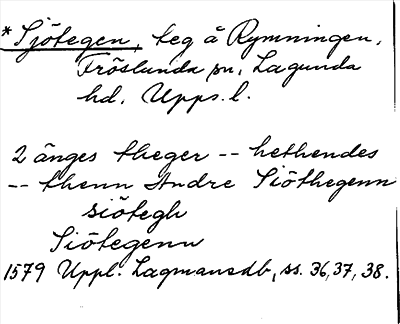 *Sjötegen, teg å Rymningen,
Fröslunda sn, Lagunda
hd, Upps. l.
2 änges theger -- hethendes
-- thenn Andre Siöthegenn
siötegh
Siötegenn
1579 Uppl. Lagmansdb, ss. 36, 37, 38.